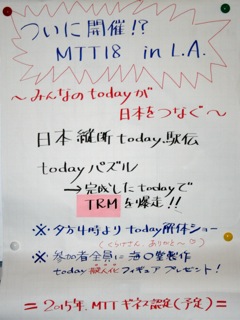 ついに開催!?
MTT18 in L.A.
～みんなのtodayが
日本をつなぐ～
日本縦断today駅伝
todayパズル
→完成したtodayで
TRMを爆走!!
※・夕方4時よりtoday解体ショー
(くらげさん、ありがと～♡)
※・参加者全員に海○堂製作
today擬人化フィギュアプレゼント!
=2015年、MTTギネス認定(予定)=